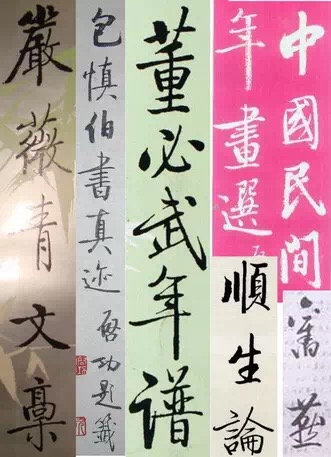 中國民間
年畫選
舊燕
順生論
董必武年谱
包慎伯書真迹 啓功題籤
嚴薇青文稾